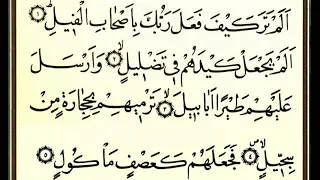 اَلَمْ تَرَ كَيْفَ فَعَلَ رَبُّكَ بِاَصْحَابِ الْفٖيلِ ۝١
اَلَمْ يَجْعَلْ كَيْدَهُمْ فٖي تَضْلٖيلٍ ۝٢ وَاَرْسَلَ
عَلَيْهِمْ طَيْرًا اَبَابٖيلَ ۝٣ تَرْمٖيهِمْ بِحِجَارَةٍ مِنْ
سِجّٖيلٍ ۝٤ فَجَعَلَهُمْ كَعَصْفٍ مَاْكُولٍ ۝٥